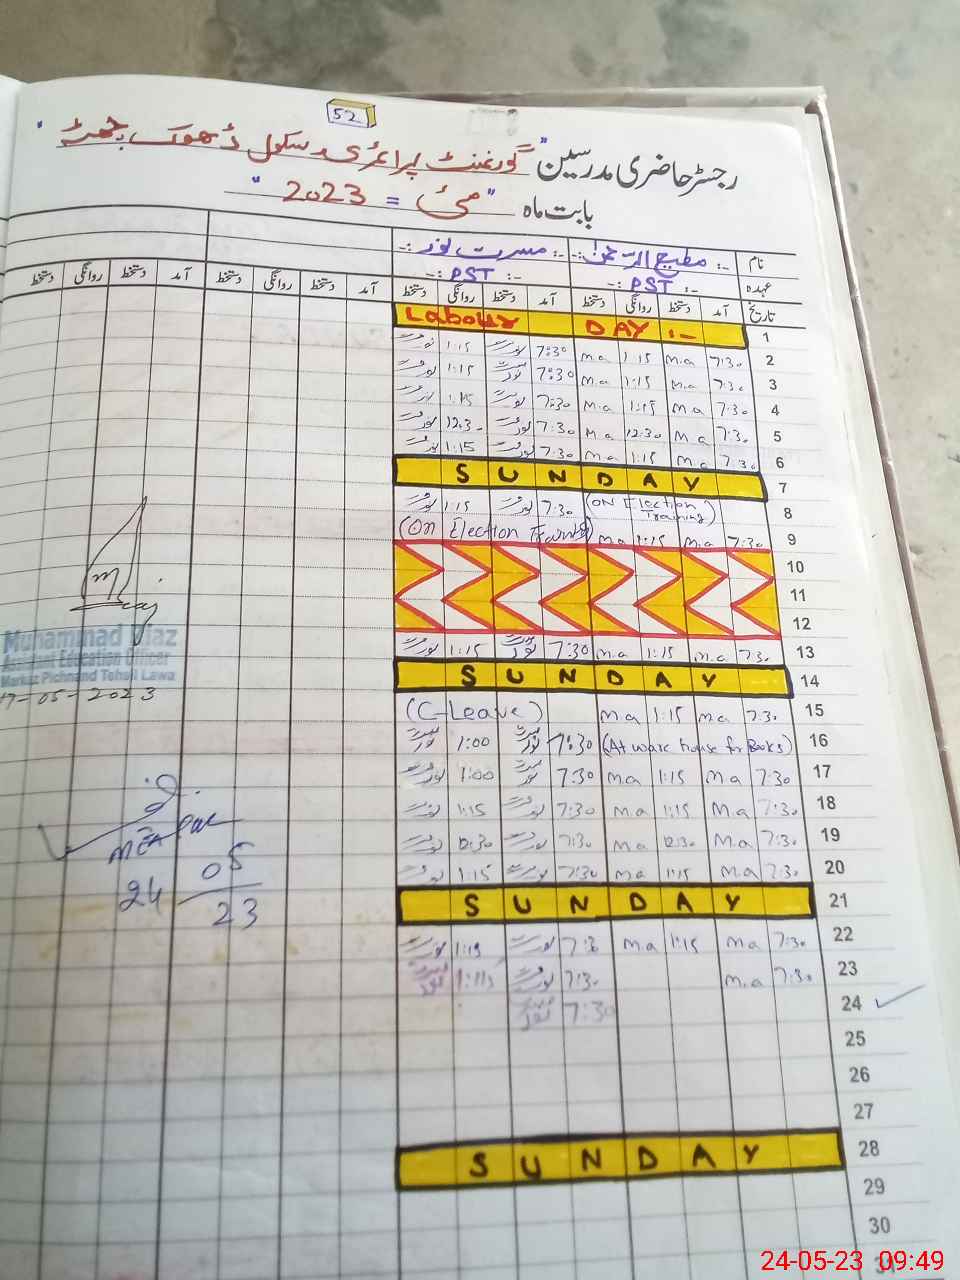 52
رجسٹر حاضری مدرسین "گورنمنٹ پرائمری سکول ڈھوک
بابت ماہ "مئی = 2023"
نام مطیع الرحمٰن :- مسرت نور :-
عہدہ PST :- PST :-
تاریخ آمد دستخط روانگی دستخط آمد دستخط روانگی دستخط آمد دستخط روانگی دستخط آمد دستخط روانگی دستخط
Labour DAY :- 1
1:15 7:30 m.a 1:15 m.a 7:30 2
1:15 7:30 m.a 1:15 m.a 7:30 3
1:15 7:30 m.a 1:15 m.a 7:30 4
12:30 7:30 m.a 12:30 m.a 7:30 5
1:15 7:30 m.a 1:15 m.a 7:30 6
SUNDAY 7
1:15 7:30 (ON Election Training) 8
(On Election Training) m.a 1:15 m.a 7:30 9
10
11
12
1:15 7:30 m.a 1:15 m.a 7:30 13
SUNDAY 14
(C-Leave) m.a 1:15 m.a 7:30 15
1:00 7:30 (At ware house for Books) 16
1:00 7:30 m.a 1:15 m.a 7:30 17
1:15 7:30 m.a 1:15 m.a 7:30 18
12:30 7:30 m.a 12:30 m.a 7:30 19
1:15 7:30 m.a 1:15 m.a 7:30 20
SUNDAY 21
1:15 7:30 m.a 1:15 m.a 7:30 22
1:15 7:30 m.a 7:30 23
7:30 24
25
26
27
SUNDAY 28
29
30
31
Assistant Education Officer
Markaz Pichnand Tehsil Lawa
17-05-2023
MEA
24 05
23
24-05-23 09:49